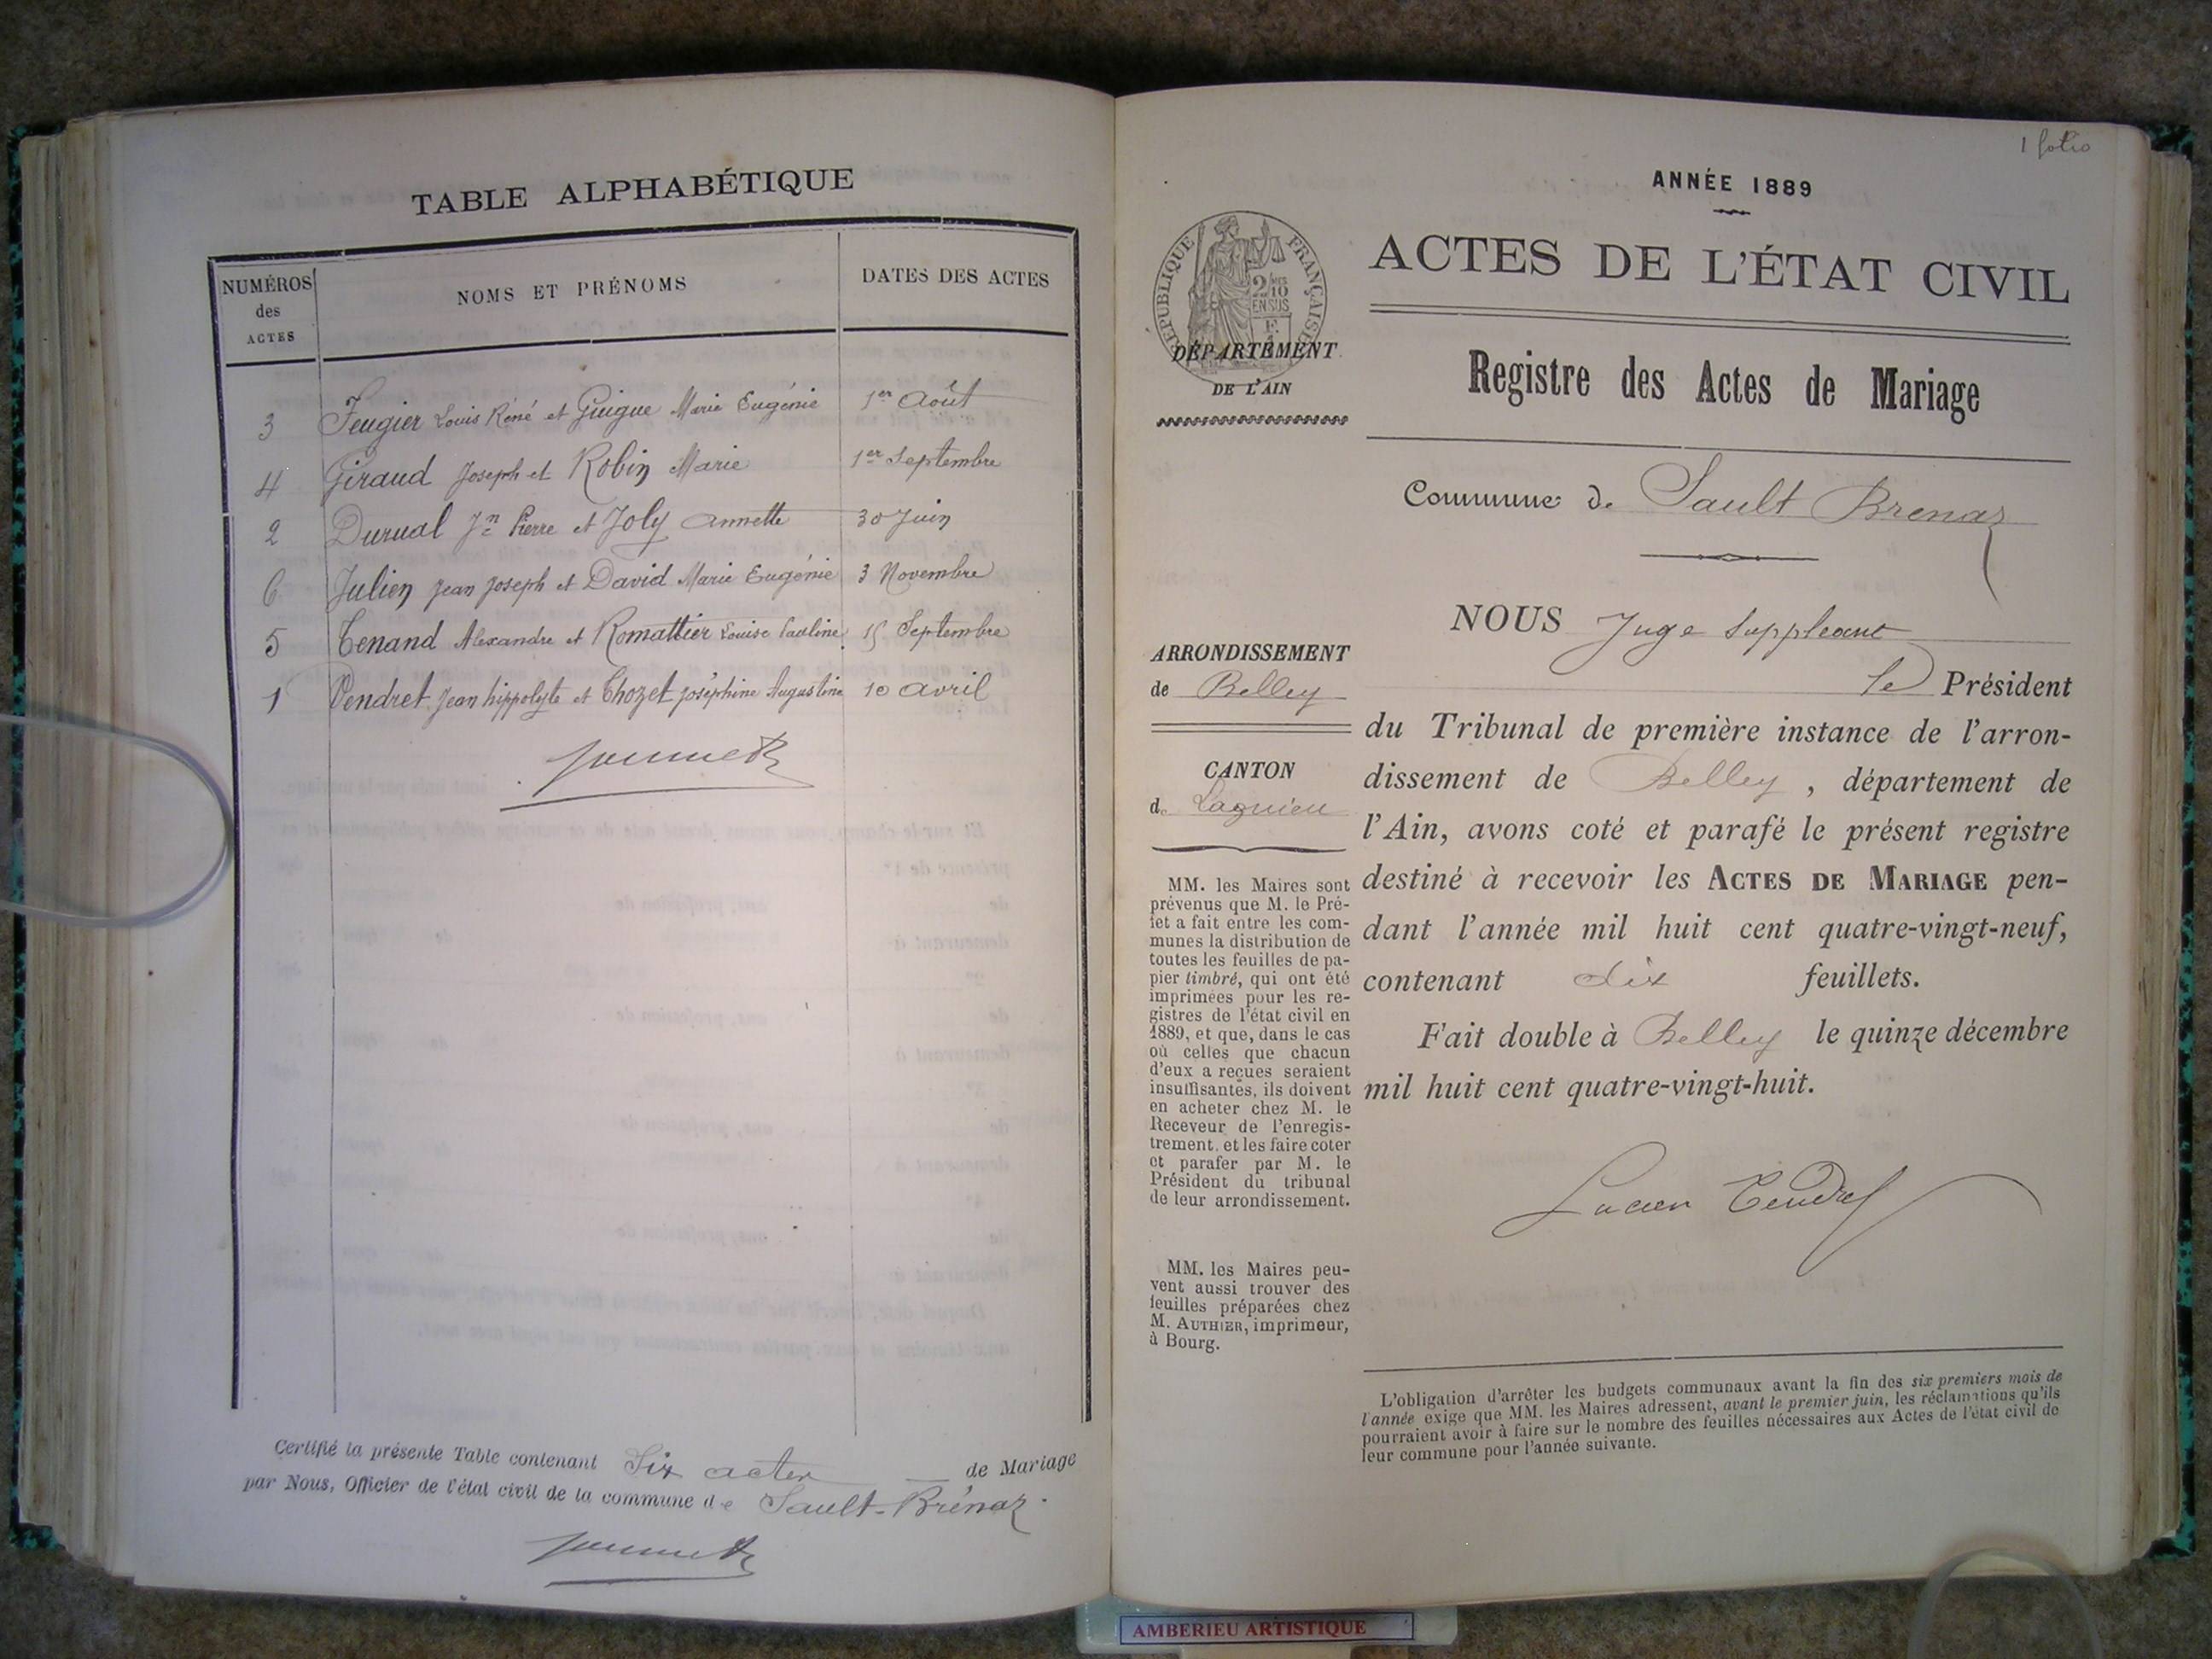 TABLE ALPHABÉTIQUE
NUMÉROS des ACTES
NOMS ET PRÉNOMS
DATES DES ACTES
3 Feugier Louis Réné et Guigue Marie Eugénie 1er Août
4 Giraud Joseph et Robin Marie 1er Septembre
2 Durual Jn Pierre et Joly Annette 30 Juin
6 Julien Jean Joseph et David Marie Eugénie 3 Novembre
5 Tenand Alexandre et Romattier Louise Pauline 15 Septembre
1 Vendret Jean hippolyte et Chozet Joséphine Augustine 10 avril
Certifié la présente Table contenant Six actes de Mariage
par Nous, Officier de l'état civil de la commune de Sault-Brénaz.
1 folio
ANNÉE 1889
RÉPUBLIQUE FRANÇAISE
2/10
EN SUS
DÉPARTEMENT
DE L'AIN
ACTES DE L'ÉTAT CIVIL
Registre des Actes de Mariage
Commune de Sault Brenaz
ARRONDISSEMENT
de Belley
CANTON
de Lagnieu
MM. les Maires sont
prévenus que M. le Pré-
fet a fait entre les com-
munes la distribution de
toutes les feuilles de pa-
pier timbré, qui ont été
imprimées pour les re-
gistres de l'état civil en
1889, et que, dans le cas
où celles que chacun
d'eux a reçues seraient
insuffisantes, ils doivent
en acheter chez M. le
Receveur de l'enregis-
trement, et les faire coter
et parafer par M. le
Président du tribunal
de leur arrondissement.
MM. les Maires peu-
vent aussi trouver des
feuilles préparées chez
M. AUTHIER, imprimeur,
à Bourg.
NOUS Juge Suppléant
le Président
du Tribunal de première instance de l'arron-
dissement de Belley, département de
l'Ain, avons coté et parafé le présent registre
destiné à recevoir les ACTES DE MARIAGE pen-
dant l'année mil huit cent quatre-vingt-neuf,
contenant dix feuillets.
Fait double à Belley le quinze décembre
mil huit cent quatre-vingt-huit.
Lucien Tendret
L'obligation d'arrêter les budgets communaux avant la fin des six premiers mois de
l'année exige que MM. les Maires adressent, avant le premier juin, les réclamations qu'ils
pourraient avoir à faire sur le nombre des feuilles nécessaires aux Actes de l'état civil de
leur commune pour l'année suivante.
AMBERIEU ARTISTIQUE